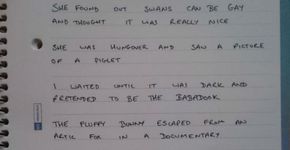 SHE FOUND OUT SWANS CAN BE GAY
AND THOUGHT IT WAS REALLY NICE
SHE WAS HUNGOVER AND SAW A PICTURE
OF A PIGLET
I WAITED UNTIL IT WAS DARK AND
PRETENDED TO BE THE BABADOOK
THE FLUFFY BUNNY ESCAPED FROM AN
ARTIC FOX IN A DOCUMENTARY